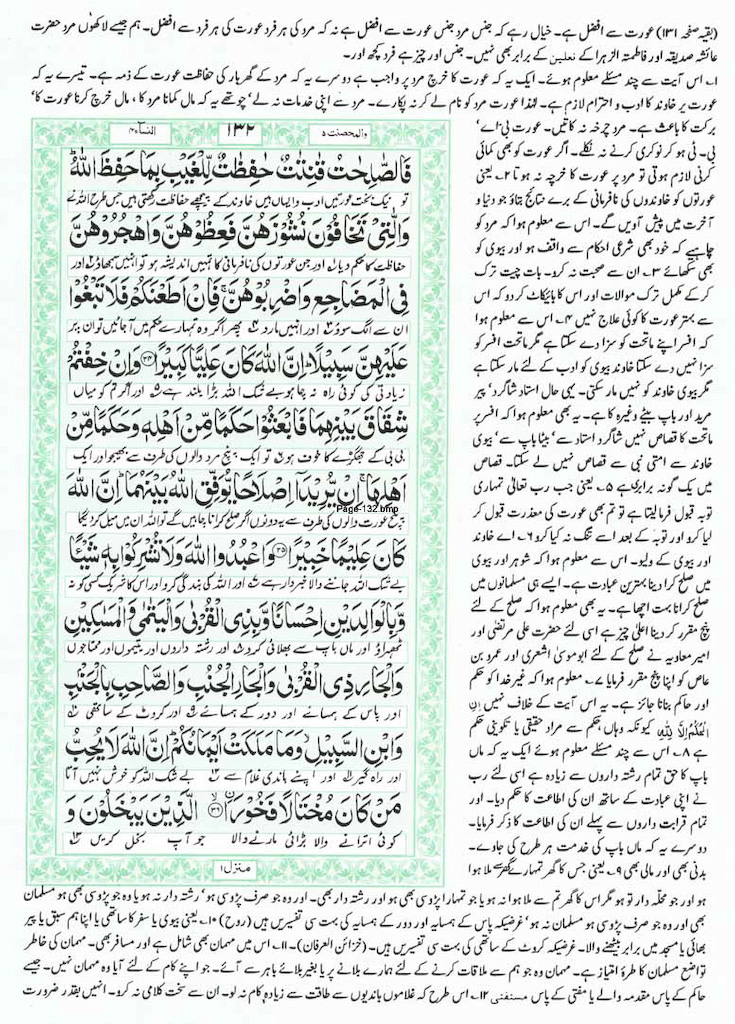 (بقیہ صفحہ ۱۳۱) عورت سے افضل ہے۔ خیال رہے کہ جنس مرد جنس عورت سے افضل ہے نہ کہ مرد کی ہر فرد عورت کی ہر فرد سے افضل۔ ہم جیسے لاکھوں مرد حضرت
عائشہ صدیقہ اور فاطمتہ الزہرا کے نعلین کے برابر بھی نہیں۔ جنس اور چیز ہے فرد کچھ اور۔
۱۔ اس آیت سے چند مسئلے معلوم ہوئے۔ ایک یہ کہ عورت کا خرچ مرد پر واجب ہے دوسرے یہ کہ مرد کے گھر بار کی حفاظت عورت کے ذمہ ہے۔ تیسرے یہ کہ
عورت پر خاوند کا ادب و احترام لازم ہے۔ لہٰذا عورت مرد کو نام لے کر نہ پکارے۔ مرد سے اپنی خدمات نہ لے' چوتھے یہ کہ مال کمانا مرد کا، مال خرچ کرنا عورت کا'
برکت کا باعث ہے۔ مرد چرخہ نہ کاتیں۔ عورت بی' اے'
بی۔ ٹی ہو کر نوکری کرنے نہ نکلے۔ اگر عورت کو بھی کمائی
کرنی لازم ہوتی تو مرد پر عورت کا خرچہ نہ ہوتا ۲۔ یعنی
عورتوں کو خاوندوں کی نافرمانی کے برے نتائج بتاؤ جو دنیا و
آخرت میں پیش آویں گے۔ اس سے معلوم ہوا کہ مرد کو
چاہیے کہ خود بھی شرعی احکام سے واقف ہو اور بیوی کو
بھی سکھائے ۳۔ ان سے صحبت نہ کرو۔ بات چیت ترک
کر کے مکمل ترک موالات اور اس کا بائیکاٹ کر دو کہ اس
سے بہتر عورت کا کوئی علاج نہیں ۴۔ اس سے معلوم ہوا
کہ افسر اپنے ماتحت کو سزا دے سکتا ہے مگر ماتحت افسر کو
سزا نہیں دے سکتا خاوند بیوی کو ادب کے لئے مار سکتا ہے
مگر بیوی خاوند کو نہیں مار سکتی۔ یہی حال استاد شاگرد' پیر
مرید اور باپ بیٹے وغیرہ کا ہے۔ یہ بھی معلوم ہوا کہ افسر پر
ماتحت کا قصاص نہیں' شاگرد استاد سے' بیٹا باپ سے' بیوی
خاوند سے امتی نبی سے قصاص نہیں لے سکتا۔ قصاص
میں یک گونہ برابری ہے ۵۔ یعنی جب رب تعالٰی تمہاری
توبہ قبول فرمالیتا ہے تو تم بھی عورت کی معذرت قبول کر
لیا کرو اور توبہ کے بعد اسے تنگ نہ کیا کرو ۶۔ اے خاوند
اور بیوی کے ولیو۔ اس سے معلوم ہوا کہ شوہر اور بیوی
میں صلح کرا دینا بہترین عبادت ہے۔ ایسے ہی مسلمانوں میں
صلح کرانا بہت اچھا ہے۔ یہ بھی معلوم ہوا کہ صلح کے لئے
پنچ مقرر کر دینا اعلٰی چیز ہے اسی لئے حضرت علی مرتضٰی اور
امیر معاویہ نے صلح کے لئے ابو موسٰی اشعری اور عمرو بن
عاص کو اپنا پنچ مقرر فرمایا ۷۔ معلوم ہوا کہ غیر خدا کو حکم
اور حاکم بنانا جائز ہے۔ یہ اس آیت کے خلاف نہیں اِنِ
الْحُکْمُ اِلَّا لِلّٰہِ کیونکہ وہاں حکم سے مراد حقیقی یا تکوینی حکم
ہے ۸۔ اس سے چند مسئلے معلوم ہوئے ایک یہ کہ ماں
باپ کا حق تمام رشتہ داروں سے زیادہ ہے اسی لئے رب
نے اپنی عبادت کے ساتھ ان کی اطاعت کا حکم دیا۔ اور
تمام قرابت داروں سے پہلے ان کی اطاعت کا ذکر فرمایا۔
دوسرے یہ کہ ماں باپ کی خدمت ہر طرح کی جاوے۔
بدنی بھی اور مالی بھی ۹۔ یعنی جس کا گھر تمہارے گھر سے ملا ہوا
والمحصنت ۵
۱۳۲
النساء ۴
فَالصّٰلِحٰتُ قٰنِتٰتٌ حٰفِظٰتٌ لِّلْغَیْبِ بِمَا حَفِظَ اللّٰهُ
تو نیک بخت عورتیں ادب والیاں ہیں خاوند کے پیچھے حفاظت رکھتی ہیں جس طرح اللہ نے
وَالّٰتِیْ تَخَافُوْنَ نُشُوْزَهُنَّ فَعِظُوْهُنَّ وَاهْجُرُوْهُنَّ
حفاظت کا حکم دیا اور جن عورتوں کی نافرمانی کا تمہیں اندیشہ ہو تو انہیں سمجھاؤ اور
فِی الْمَضَاجِعِ وَاضْرِبُوْهُنَّ فَاِنْ اَطَعْنَكُمْ فَلَا تَبْغُوْا
ان سے الگ سوؤ اور انہیں مارو پھر اگر وہ تمہارے حکم میں آجائیں تو ان پر
عَلَیْهِنَّ سَبِیْلًا اِنَّ اللّٰهَ كَانَ عَلِیًّا كَبِیْرًا ﴿۳۴﴾ وَاِنْ خِفْتُمْ
زیادتی کی کوئی راہ نہ چاہو بے شک اللہ بڑا بلند ہے اور اگر تم کو میاں
شِقَاقَ بَیْنِهِمَا فَابْعَثُوْا حَكَمًا مِّنْ اَهْلِهٖ وَحَكَمًا مِّنْ
بی بی کے جھگڑے کا خوف ہو تو ایک پنچ مرد والوں کی طرف سے بھیجو اور ایک
اَهْلِهَا اِنْ یُّرِیْدَاۤ اِصْلَاحًا یُّوَفِّقِ اللّٰهُ بَیْنَهُمَا اِنَّ اللّٰهَ
Page-132.bmp
پنچ عورت والوں کی طرف سے یہ دونوں اگر صلح کرانا چاہیں گے تو اللہ ان میں میل کردیگا
كَانَ عَلِیْمًا خَبِیْرًا ﴿۳۵﴾ وَاعْبُدُوا اللّٰهَ وَلَا تُشْرِكُوْا بِهٖ شَیْـًٔا
بے شک اللہ جاننے والا خبردار ہے اور اللہ کی بندگی کرو اور اس کا شریک کسی کو نہ
وَّبِالْوَالِدَیْنِ اِحْسَانًا وَّبِذِی الْقُرْبٰى وَالْیَتٰمٰى وَالْمَسٰكِیْنِ
ٹھہراؤ اور ماں باپ سے بھلائی کرو اور رشتہ داروں اور یتیموں اور محتاجوں
وَالْجَارِ ذِی الْقُرْبٰى وَالْجَارِ الْجُنُبِ وَالصَّاحِبِ بِالْجَنْۢبِ
اور پاس کے ہمسائے اور دور کے ہمسائے اور کروٹ کے ساتھی
وَابْنِ السَّبِیْلِ وَمَا مَلَكَتْ اَیْمَانُكُمْ اِنَّ اللّٰهَ لَا یُحِبُّ
اور راہ گیر اور اپنے باندی غلام سے بے شک اللہ کو خوش نہیں آتا
مَنْ كَانَ مُخْتَالًا فَخُوْرًا ﴿۳۶﴾ الَّذِیْنَ یَبْخَلُوْنَ وَ
کوئی اترانے والا بڑائی مارنے والا جو آپ بخل کریں
منزل ۱
ہو اور جو محلہ دار تو ہو مگر اس کا گھر تم سے ملا ہوا نہ ہو یا جو تمہارا پڑوسی بھی ہو اور رشتہ دار بھی۔ اور وہ جو صرف پڑوسی ہو' رشتہ دار نہ ہو یا وہ جو پڑوسی بھی ہو مسلمان
بھی اور وہ جو صرف پڑوسی ہو مسلمان نہ ہو' غرضیکہ پاس کے ہمسایہ اور دور کے ہمسایہ کی بہت سی تفسیریں ہیں (روح) ۱۰۔ یعنی بیوی یا سفر کا ساتھی یا اپنا ہم سبق یا پیر
بھائی یا مسجد میں برابر بیٹھنے والا۔ غرضیکہ کروٹ کے ساتھی کی بہت سی تفسیریں ہیں۔ (خزائن العرفان)۔ ۱۱۔ اس میں مہمان بھی شامل ہے اور مسافر بھی۔ مہمان کی خاطر
تواضع مسلمان کا طرۂ امتیاز ہے۔ مہمان وہ جو ہم سے ملاقات کرنے کے لئے ہمارے بلانے پر یا بغیر بلائے باہر سے آئے۔ جو اپنے کام کے لئے آیا وہ مہمان نہیں۔ جیسے
حاکم کے پاس مقدمہ والے یا مفتی کے پاس مستفتی ۱۲۔ اس طرح کہ غلاموں باندیوں سے طاقت سے زیادہ کام نہ لو۔ ان سے سخت کلامی نہ کرو۔ انہیں بقدر ضرورت